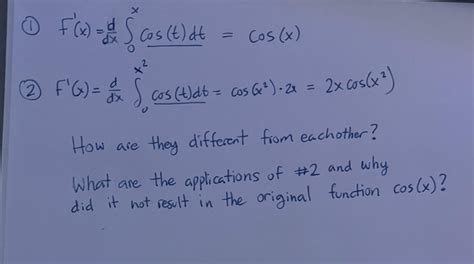 ① F'(x) = d/dx ∫₀ˣ cos(t) dt = cos(x)
② F'(x) = d/dx ∫₀^(x²) cos(t) dt = cos(x²) · 2x = 2x cos(x²)
How are they different from eachother?
What are the applications of #2 and why
did it not result in the original function cos(x)?